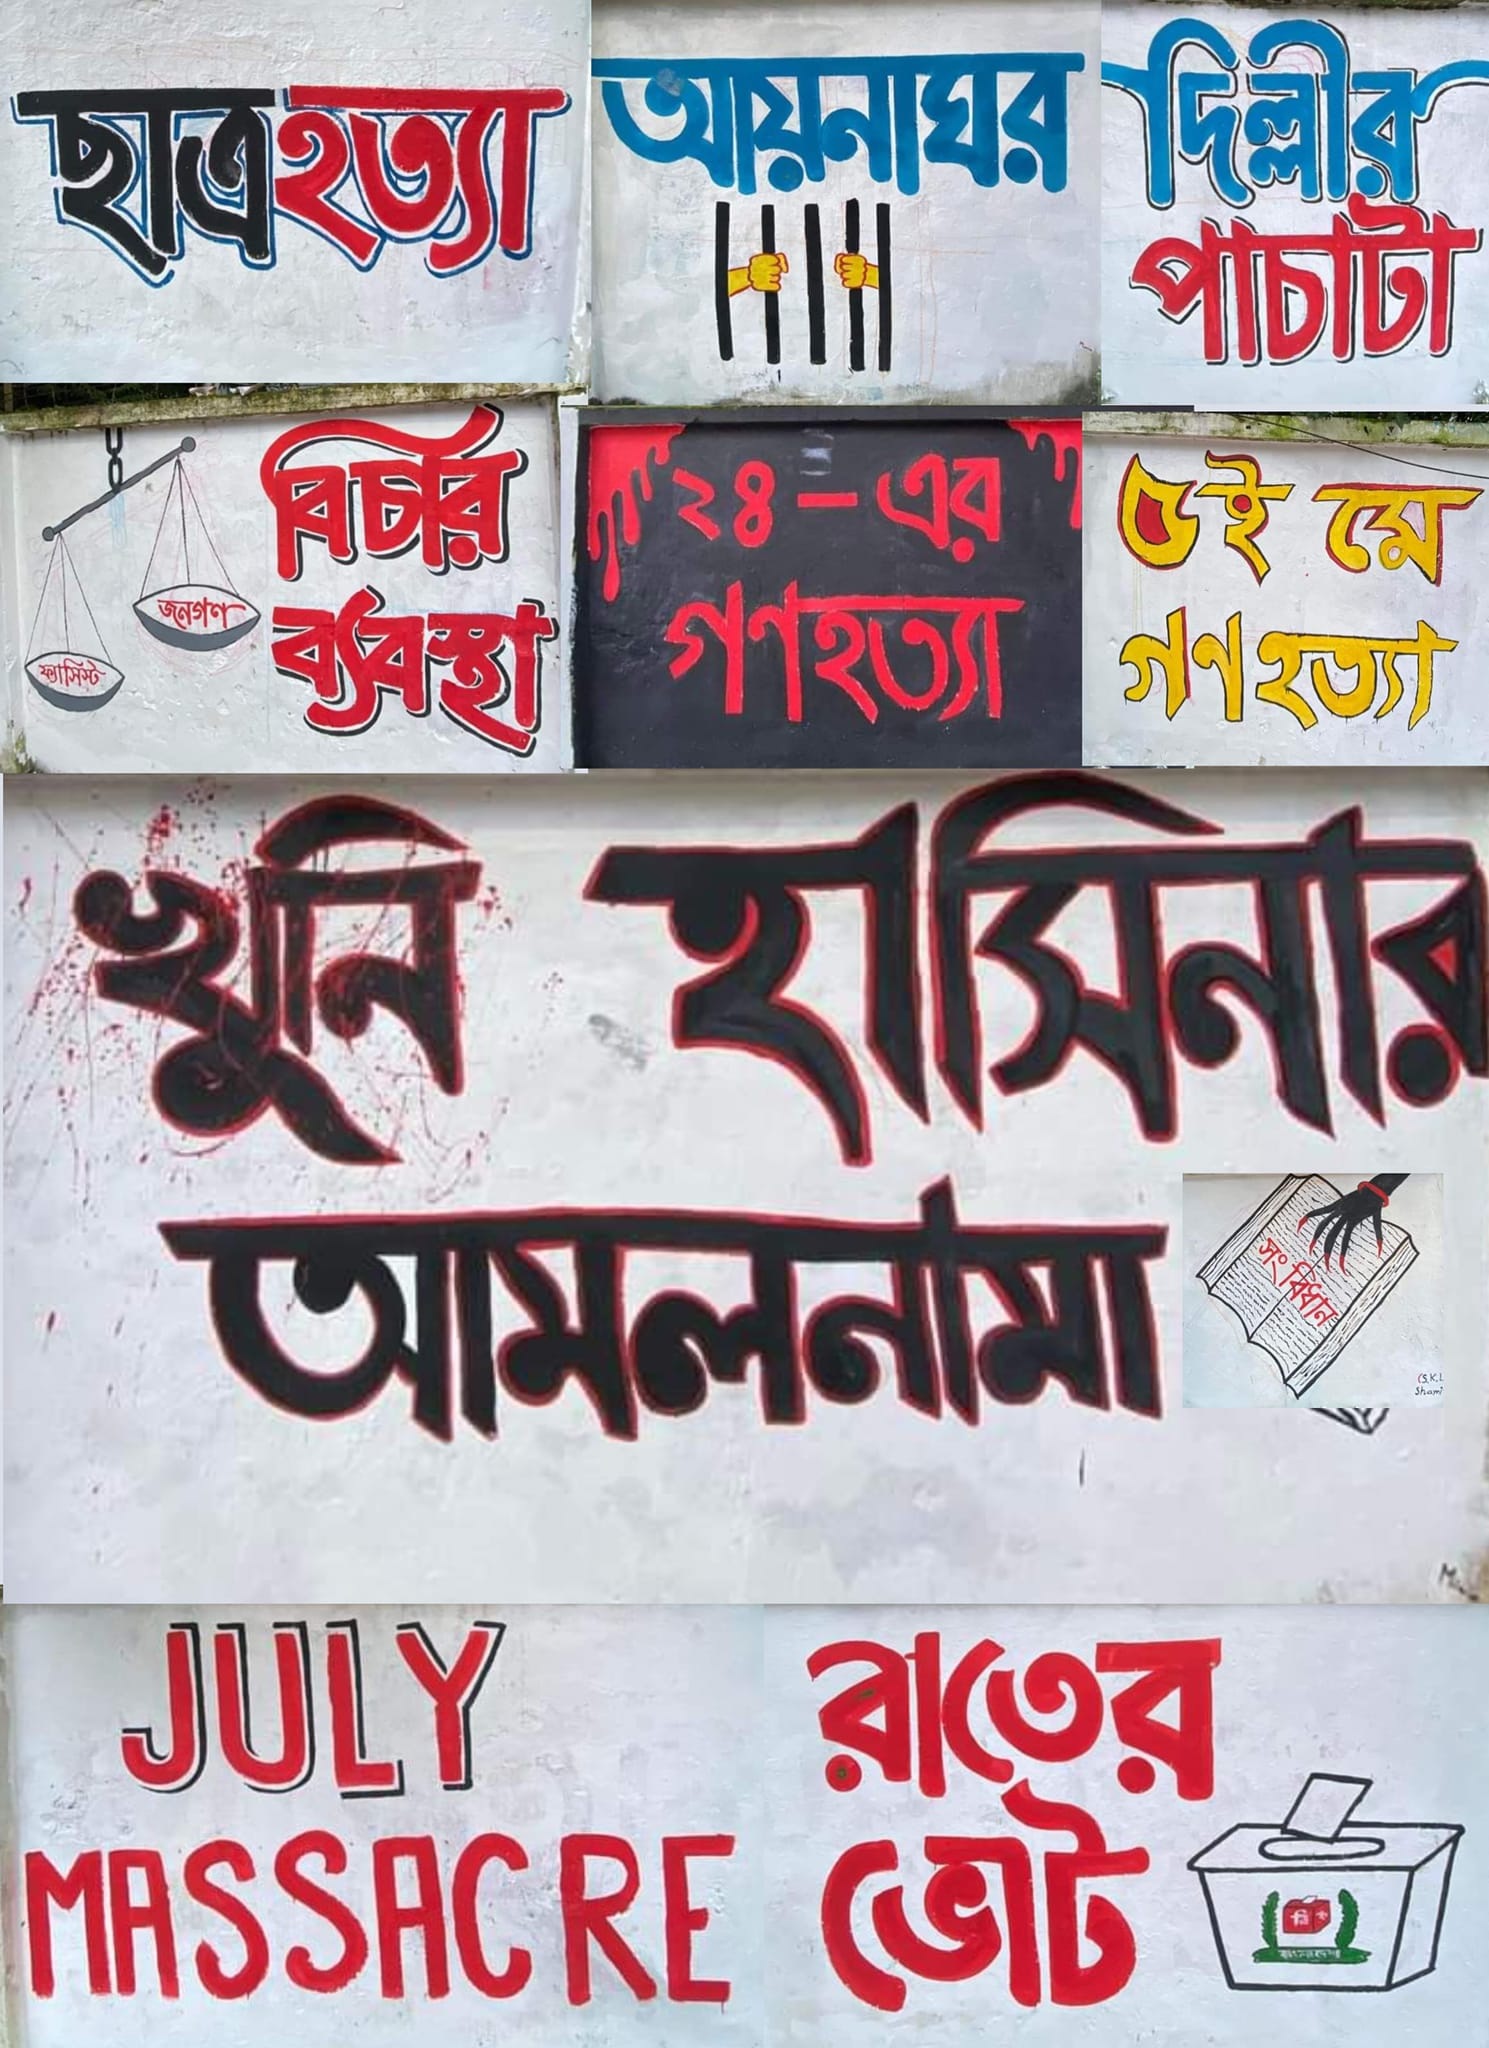 ছাত্রহত্যা
আয়নাঘর
দিল্লীর
পাচাটা
বিচার
ব্যবস্থা
জনগণ
ফ্যাসিস্ট
২৪-এর
গণহত্যা
৫ই মে
গণহত্যা
খুনি হাসিনার
আমলনামা
সংবিধান
(S.K.L
Shami
JULY
MASSACRE
রাতের
ভোট
বাংলাদেশ